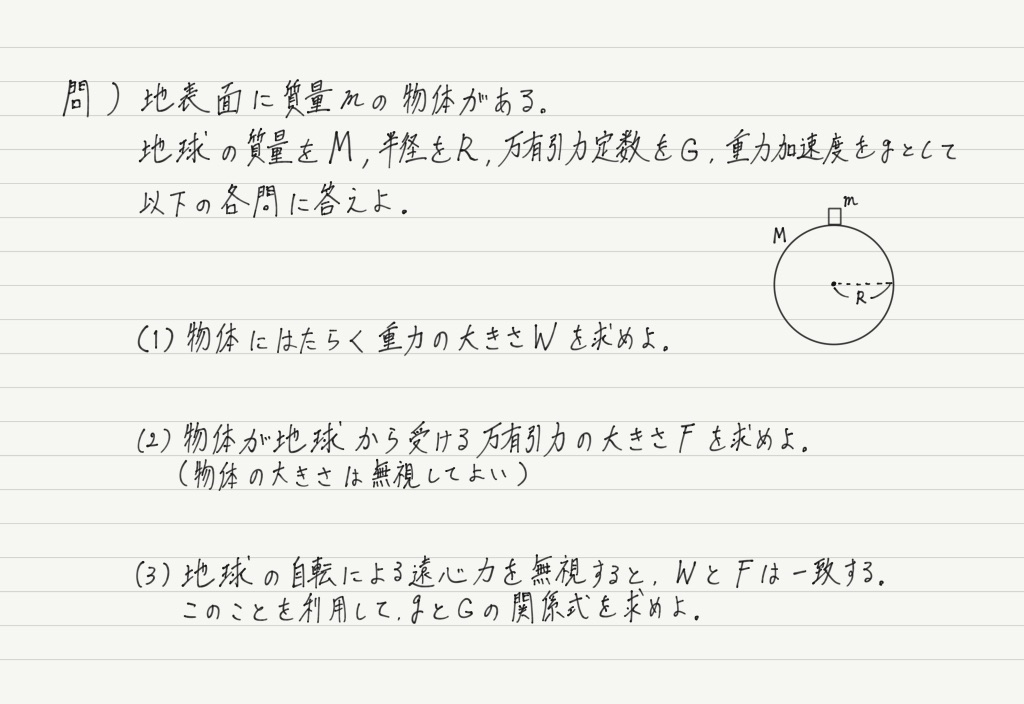 問）地表面に質量mの物体がある。
地球の質量をM,半径をR,万有引力定数をG,重力加速度をgとして
以下の各問に答えよ.
m
M
R
(1)物体にはたらく重力の大きさWを求めよ.
(2)物体が地球から受ける万有引力の大きさFを求めよ.
(物体の大きさは無視してよい)
(3)地球の自転による遠心力を無視すると,WとFは一致する.
このことを利用して,gとGの関係式を求めよ.